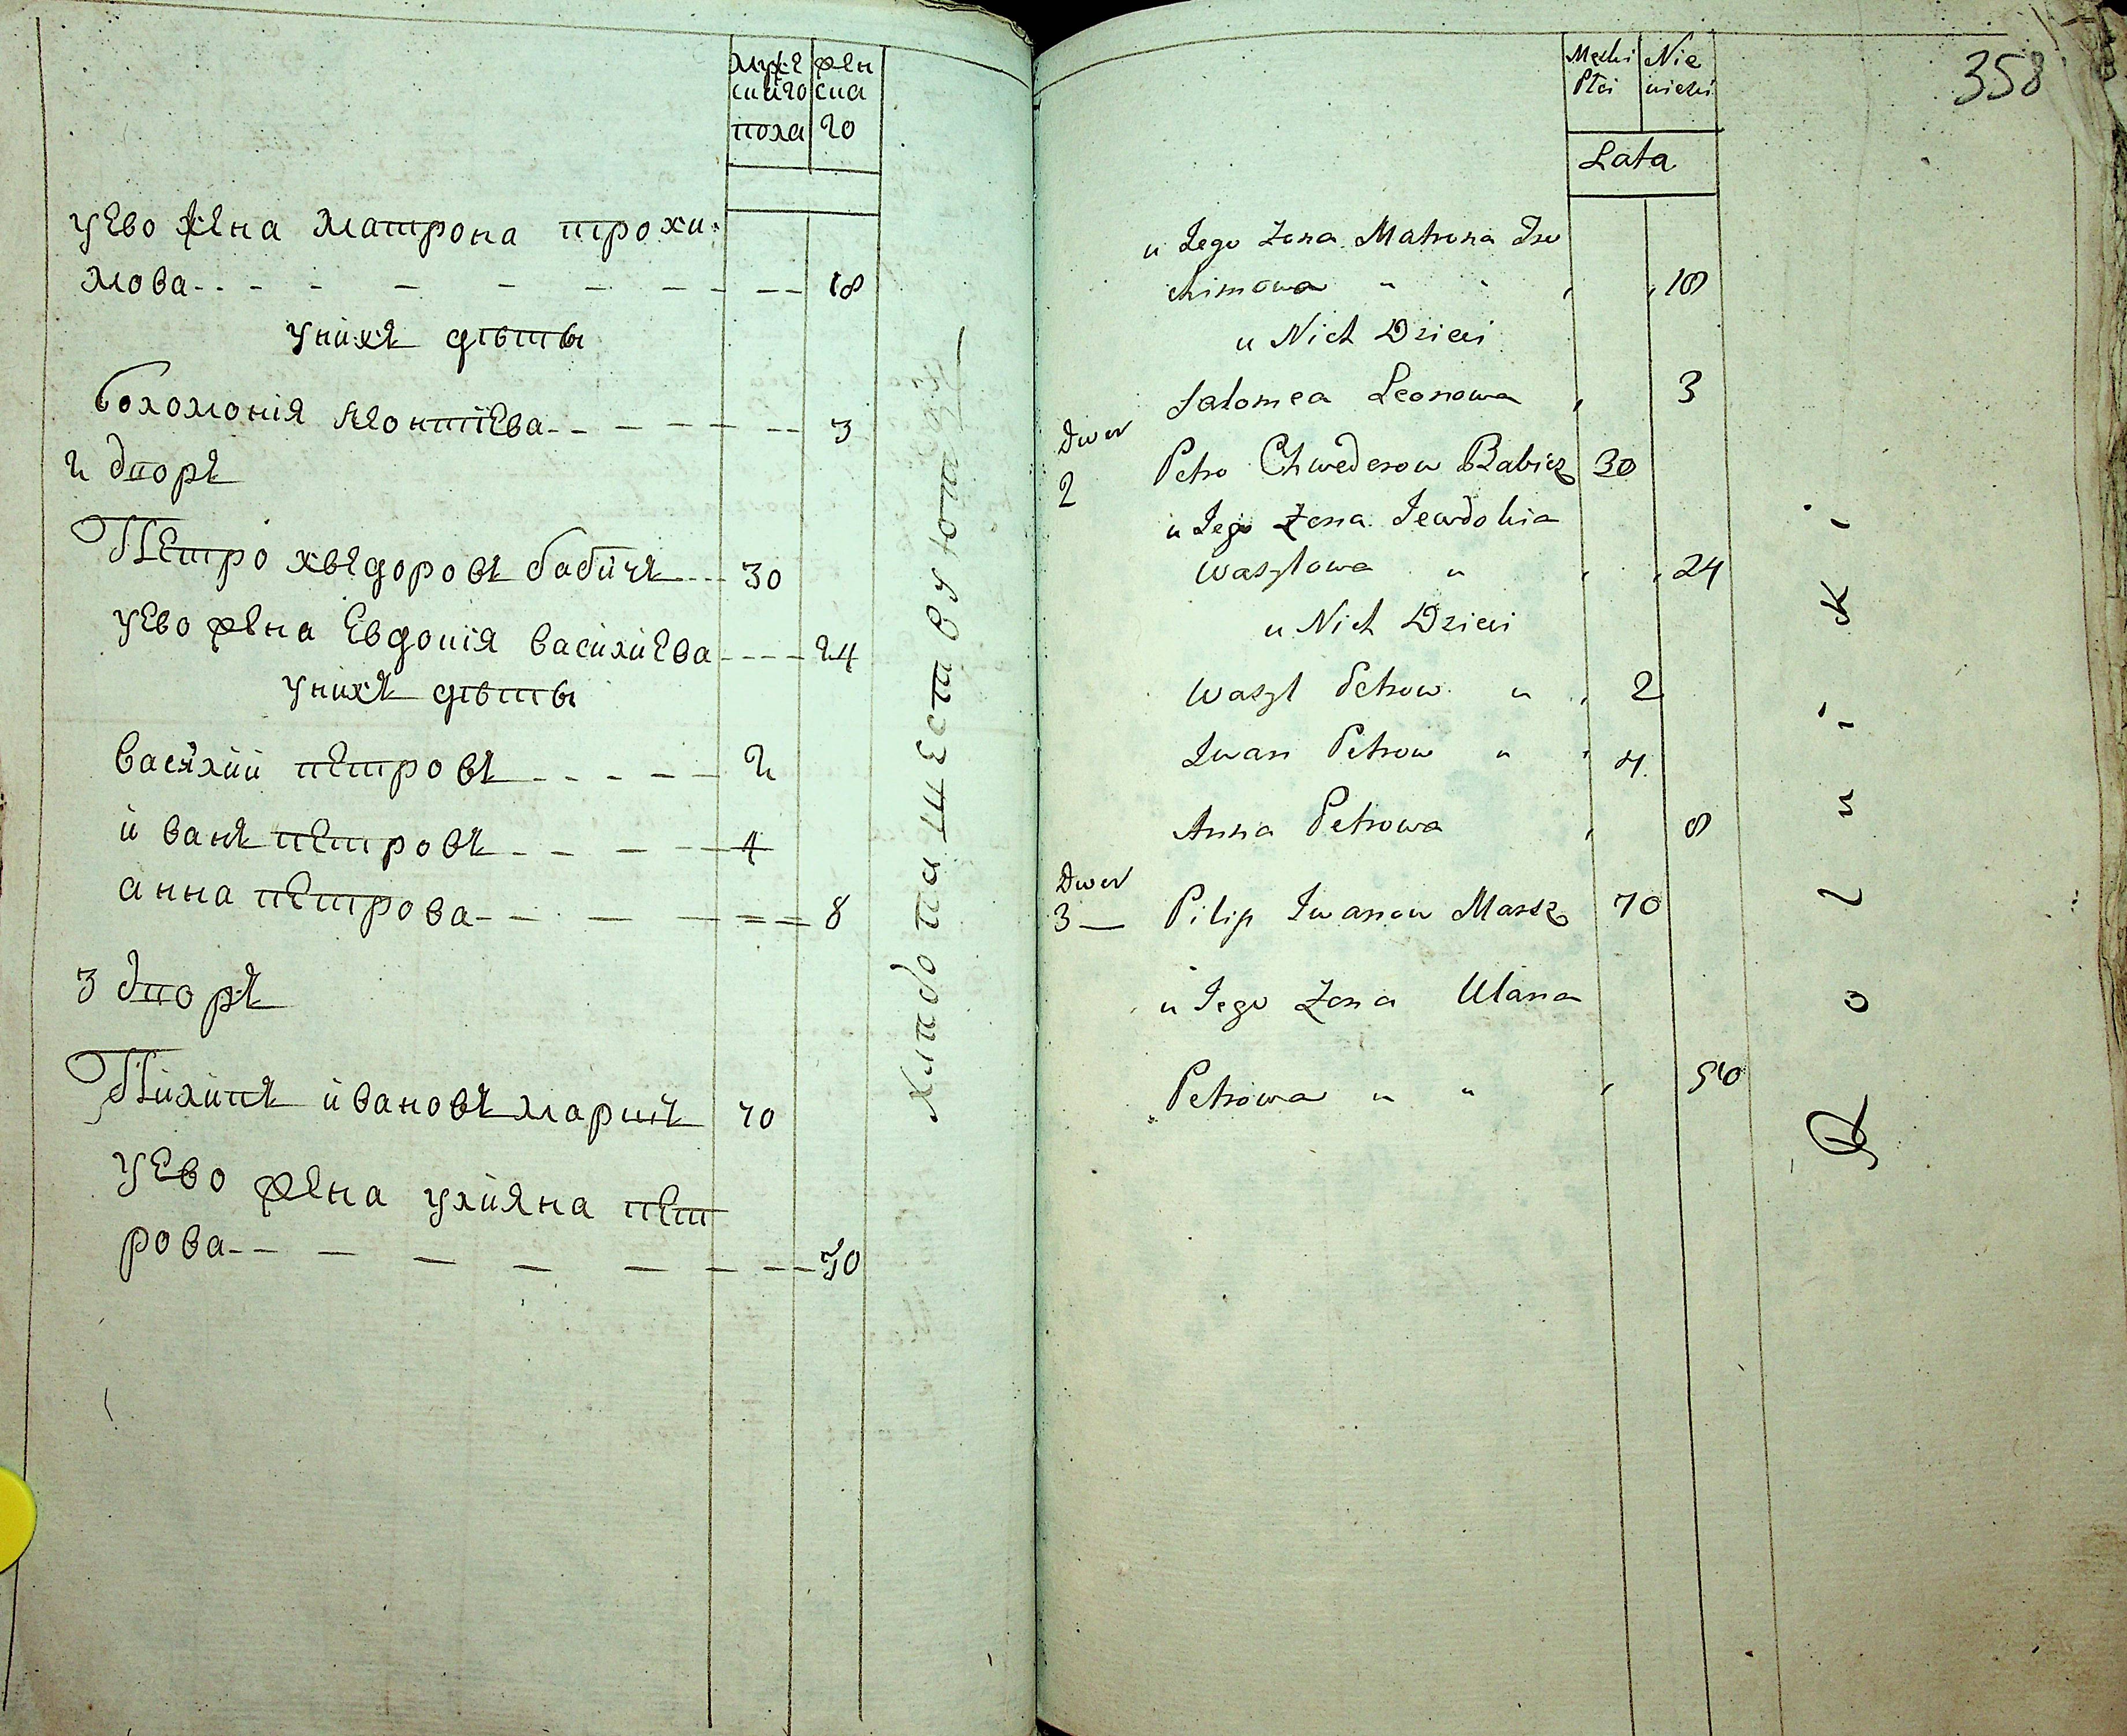 мужескаго пола
женскаго
уево жена матрона трохи-
мова 18
унихъ дѣты
Соломонія леонтіева 3
2 дворъ
Петро хведоровъ бабичъ 30
уево жена Евдокія василиева 24
унихъ дѣты
василий петровъ 2
иванъ петровъ 4
анна петрова 8
3 дворъ
Пилипъ ивановъ марущ 70
уево жена улияна пет
рова 50
хлѣбопашествуют
358
Męski Płci
Niewieski
Lata
u Jego Zona Matrona Tro
chimowa 18
u Nich Dzieci
Salomea Leonowa 3
Dwor
2 Petro Chwederow Babicz 30
u Jego Zona Jewdokia
Wasylowa 24
u Nich Dzieci
Wasyl Petrow 2
Iwan Petrow 4
Anna Petrowa 8
Dwor
3 Pilip Iwanow 70
u Jego Zona Ulana
Petrowa 50
Rolniki